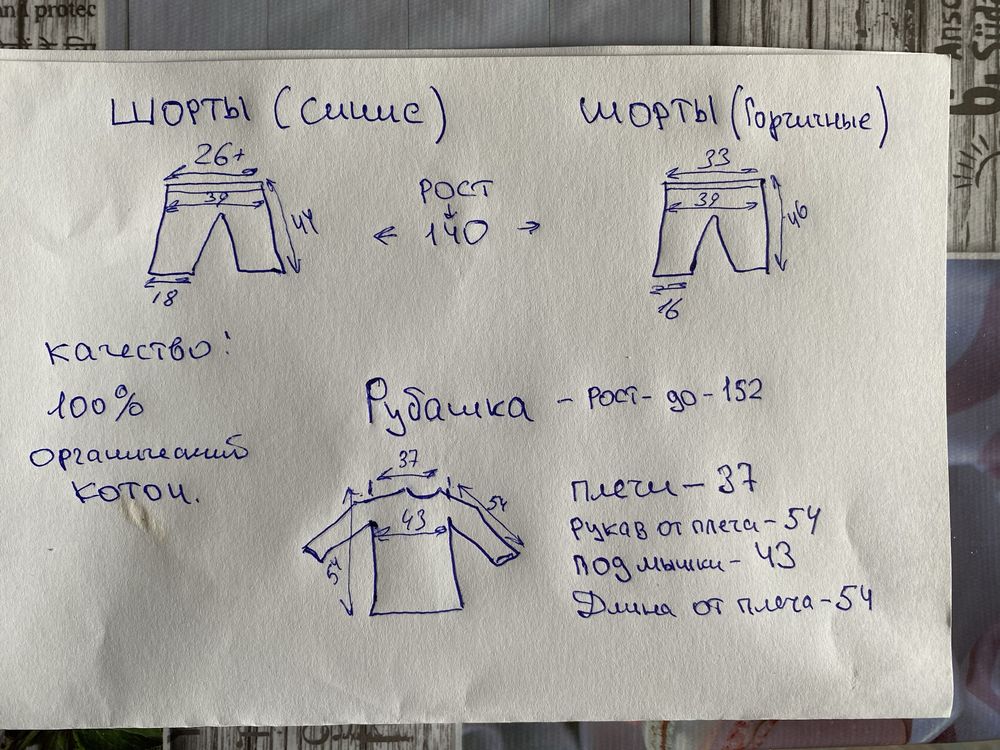 and protec
ШОРТЫ (Синие)
ШОРТЫ (Горчичные)
26+
39
44
18
РОСТ
140
33
39
46
16
качество:
100%
органический
котон.
Рубашка - РОСТ - до - 152
37
43
54
54
плечи - 37
Рукав от плеча - 54
подмышки - 43
Длина от плеча - 54